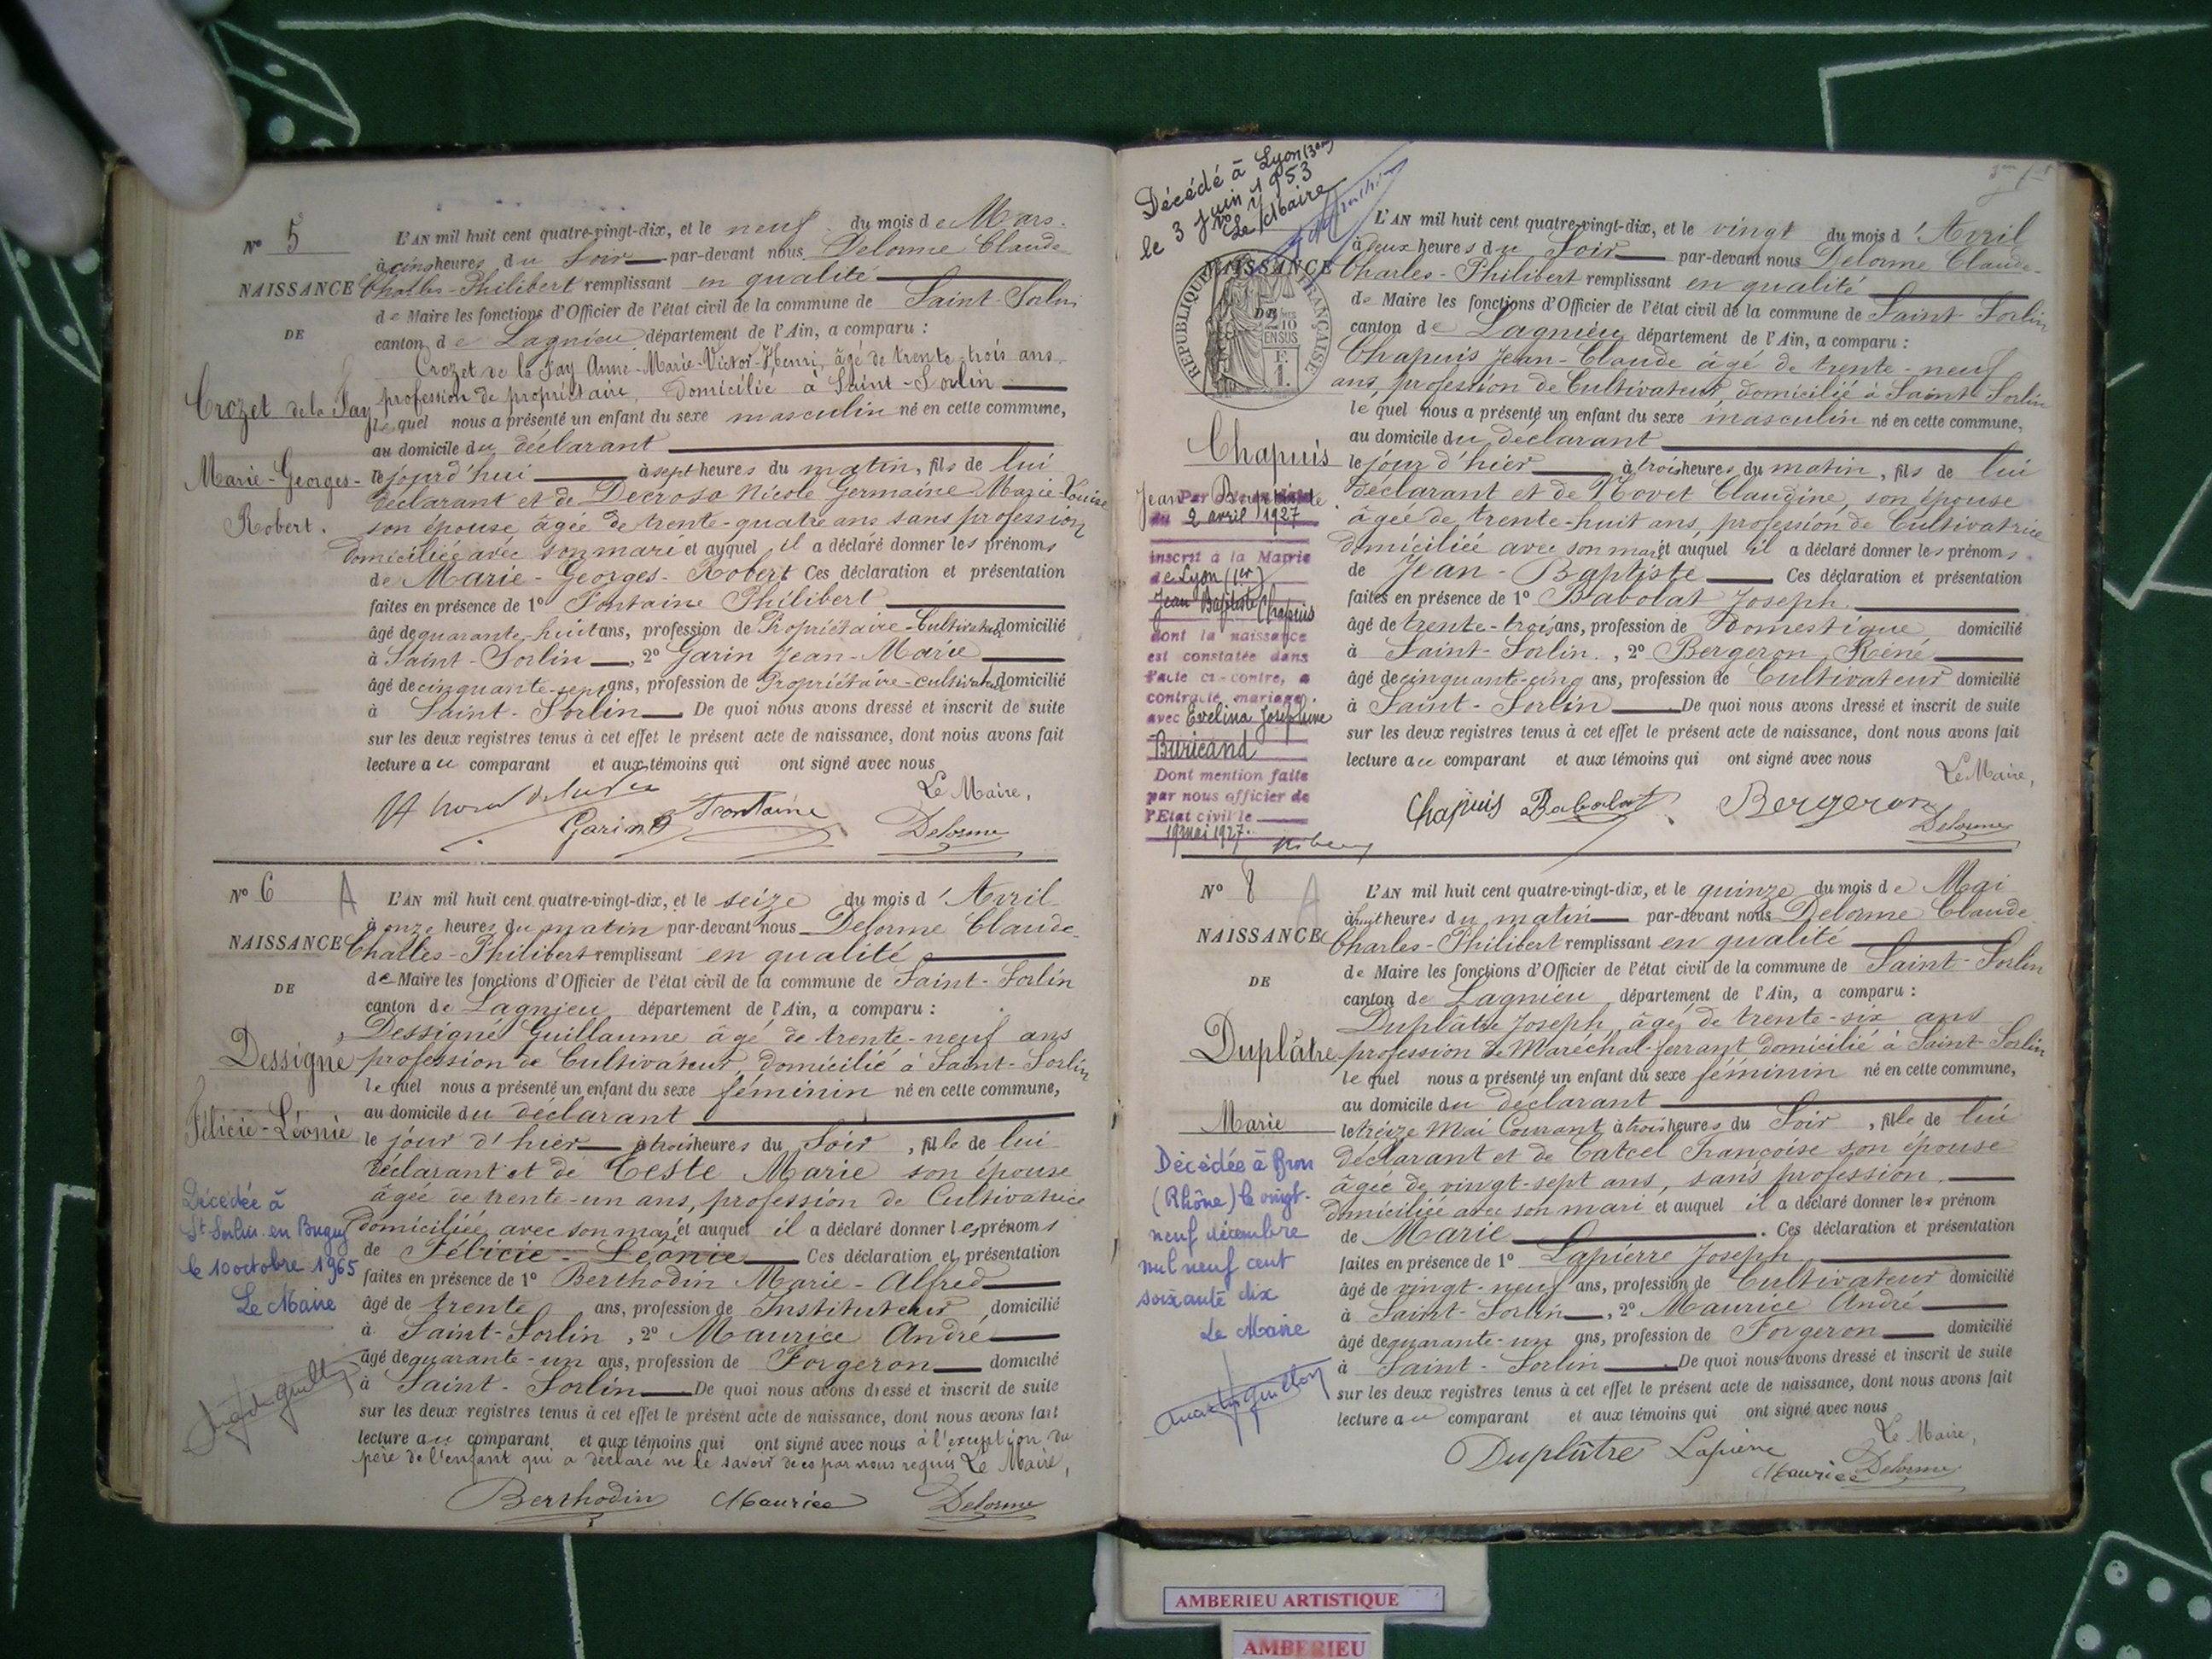 N° 5
NAISSANCE
DE
Crozet de la Fay
Marie-Georges-
Robert.
L'AN mil huit cent quatre-vingt-dix, et le neuf du mois de Mars
à cinq heures du Soir par-devant nous Delorme Claude
Charles-Philibert remplissant en qualité
de Maire les fonctions d'Officier de l'état civil de la commune de Saint-Sorlin
canton de Lagnieu département de l'Ain, a comparu :
Crozet de la Fay Anne-Marie-Victor-Henri, âgé de trente-trois ans
profession de propriétaire, domicilié à Saint-Sorlin
lequel nous a présenté un enfant du sexe masculin né en cette commune,
au domicile du déclarant
lejourd'hui à sept heures du matin, fils de lui
déclarant et de Decroso Nicole Germaine Marie-Louise
son épouse âgée de trente-quatre ans sans profession
domiciliée avec son mari et auquel il a déclaré donner les prénoms
de Marie-Georges-Robert Ces déclaration et présentation
faites en présence de 1° Fontaine Philibert
âgé de quarante-huit ans, profession de Propriétaire-Cultivateur domicilié
à Saint-Sorlin, 2° Garin Jean-Marie
âgé de cinquante-sept ans, profession de Propriétaire-cultivateur domicilié
à Saint-Sorlin De quoi nous avons dressé et inscrit de suite
sur les deux registres tenus à cet effet le présent acte de naissance, dont nous avons fait
lecture au comparant et aux témoins qui ont signé avec nous
Le Maire,
Garin Fontaine Delorme
N° 6 A
NAISSANCE
DE
Dessigne
Félicie-Léonie
Décédée à
St Sorlin en Bugey
le 10 octobre 1965
Le Maire
L'AN mil huit cent quatre-vingt-dix, et le seize du mois d'Avril
à onze heures du matin par-devant nous Delorme Claude-
Charles-Philibert remplissant en qualité
de Maire les fonctions d'Officier de l'état civil de la commune de Saint-Sorlin
canton de Lagnieu département de l'Ain, a comparu :
Dessigne Guillaume âgé de trente-neuf ans
profession de Cultivateur, domicilié à Saint-Sorlin
lequel nous a présenté un enfant du sexe féminin né en cette commune,
au domicile du déclarant
le jour d'hier à trois heures du Soir, fille de lui
déclarant et de Teste Marie son épouse
âgée de trente-un ans, profession de Cultivatrice
domiciliée avec son mari et auquel il a déclaré donner les prénoms
de Félicie-Léonie Ces déclaration et présentation
faites en présence de 1° Berthodin Marie-Alfred
âgé de trente ans, profession de Instituteur domicilié
à Saint-Sorlin, 2° Maurice André
âgé de quarante-un ans, profession de Forgeron domicilié
à Saint-Sorlin De quoi nous avons dressé et inscrit de suite
sur les deux registres tenus à cet effet le présent acte de naissance, dont nous avons fait
lecture au comparant et aux témoins qui ont signé avec nous à l'exception du
père de l'enfant qui a déclaré ne le savoir de ce par nous requis Le Maire,
Berthodin Maurice Delorme
Décédé à Lyon (3em)
le 3 Juin 1953
Le Maire
NAISSANCE
RÉPUBLIQUE FRANÇAISE
2/10
EN SUS
F.
1.
Chapuis
Jean-Baptiste.
Par
du 2 avril 1927
inscrit à la Mairie
de Lyon (1er)
Jean Baptiste Chapuis
dont la naissance
est constatée dans
l'acte ci-contre, a
contracté mariage
avec Evelina Joséphine
Buricand
Dont mention faite
par nous officier de
l'Etat civil le
19 mai 1927.
L'AN mil huit cent quatre-vingt-dix, et le vingt du mois d'Avril
à deux heures du Soir par-devant nous Delorme Claude-
Charles-Philibert remplissant en qualité
de Maire les fonctions d'Officier de l'état civil de la commune de Saint-Sorlin
canton de Lagnieu département de l'Ain, a comparu :
Chapuis Jean-Claude âgé de trente-neuf
ans, profession de Cultivateur, domicilié à Saint-Sorlin
lequel nous a présenté un enfant du sexe masculin né en cette commune,
au domicile du déclarant
le jour d'hier à trois heures du matin, fils de lui
déclarant et de Hovet Claudine, son épouse
âgée de trente-huit ans, profession de Cultivatrice
domiciliée avec son mari et auquel il a déclaré donner les prénoms
de Jean-Baptiste Ces déclaration et présentation
faites en présence de 1° Babolat Joseph
âgé de trente-trois ans, profession de Domestique domicilié
à Saint-Sorlin, 2° Bergeron René
âgé de cinquante-cinq ans, profession de Cultivateur domicilié
à Saint-Sorlin De quoi nous avons dressé et inscrit de suite
sur les deux registres tenus à cet effet le présent acte de naissance, dont nous avons fait
lecture au comparant et aux témoins qui ont signé avec nous
Le Maire,
Chapuis Babolat Bergeron Delorme
N° 8 A
NAISSANCE
DE
Duplâtre
Marie
Décédée à Bron
(Rhône) le vingt-
neuf décembre
mil neuf cent
soixante dix
Le Maire
L'AN mil huit cent quatre-vingt-dix, et le quinze du mois de Mai
à huit heures du matin par-devant nous Delorme Claude
Charles-Philibert remplissant en qualité
de Maire les fonctions d'Officier de l'état civil de la commune de Saint-Sorlin
canton de Lagnieu département de l'Ain, a comparu :
Duplâtre Joseph, âgé de trente-six ans
profession de Maréchal-ferrant domicilié à Saint-Sorlin
lequel nous a présenté un enfant du sexe féminin né en cette commune,
au domicile du déclarant
le treize Mai Courant à trois heures du Soir, fille de lui
déclarant et de Catcel Françoise son épouse
âgée de vingt-sept ans, sans profession
domiciliée avec son mari et auquel il a déclaré donner les prénom
de Marie. Ces déclaration et présentation
faites en présence de 1° Lapierre Joseph
âgé de vingt-neuf ans, profession de Cultivateur domicilié
à Saint-Sorlin, 2° Maurice André
âgé de quarante-un ans, profession de Forgeron domicilié
à Saint-Sorlin De quoi nous avons dressé et inscrit de suite
sur les deux registres tenus à cet effet le présent acte de naissance, dont nous avons fait
lecture au comparant et aux témoins qui ont signé avec nous
Le Maire,
Duplâtre Lapierre
Maurice Delorme
AMBERIEU ARTISTIQUE
AMBERIEU